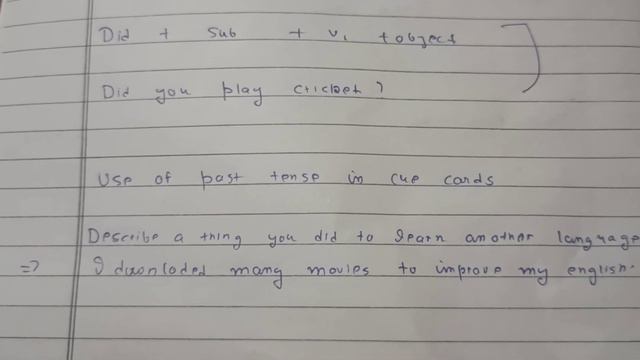 Did + Sub + V1 + object
Did you play cricket?
Use of past tense in cue cards
Describe a thing you did to learn another language
=> I downloded many movies to improve my english.